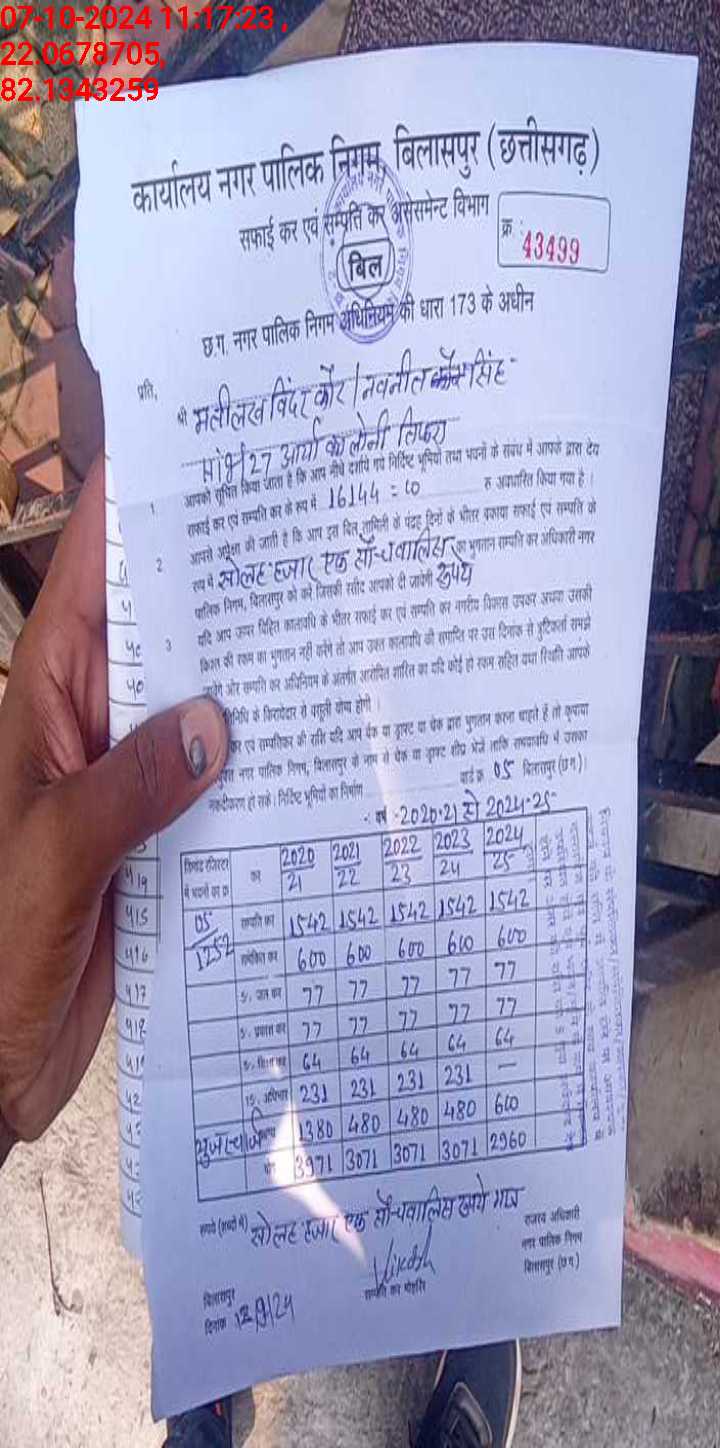 07-10-2024 11:17:23 ,
22.0678705,
82.1343259
कार्यालय नगर पालिक निगम, बिलासपुर (छत्तीसगढ़)
सफाई कर एवं सम्पत्ति कर असेसमेन्ट विभाग
क्र : 43499
बिल
छ.ग. नगर पालिक निगम अधिनियम की धारा 173 के अधीन
प्रति,
श्री विंदर कौर / नवनीत सिंह
27 आर्या कालोनी तिफरा
1 आपको सूचित किया जाता है कि आप नीचे दर्शाये गये निर्दिष्ट भूमियों तथा भवनों के संबंध में आपके द्वारा देय
सफाई कर एवं सम्पति कर के रूप में 16144 = 00 रु अवधारित किया गया है ।
2 आपसे अपेक्षा की जाती है कि आप इस बिल तामिली के पंद्रह दिनों के भीतर बकाया सफाई एवं सम्पति के
रूप में सोलह हजार एक सौ चवालिस रूपये का भुगतान सम्पति कर अधिकारी नगर
पालिक निगम, बिलासपुर को करे जिसकी रसीद आपको दी जावेगी
3 यदि आप ऊपर विहित कालावधि के भीतर सफाई कर एवं सम्पति कर नगरीय विकास उपकर अथवा उसकी
किश्त की रकम का भुगतान नहीं करेंगे तो आप उक्त कालावधि की समाप्ति पर उस दिनांक से त्रुटिकर्ता समझे
जावेंगे और सम्पति कर अधिनियम के अंतर्गत आरोपित शास्ति का यदि कोई हो रकम सहित यथा स्थिति आपके
के किरायेदार से वसूली योग्य होगी ।
कर एवं सम्पतिकर की राशि यदि आप बैंक या ड्राफ्ट या चेक द्वारा भुगतान करना चाहते हैं तो कृपया
नगर पालिक निगम, बिलासपुर के नाम से चेक या ड्राफ्ट शीघ्र भेजें ताकि समयावधि में उसका
नकदीकरण हो सके। निर्दिष्ट भूमियों का निर्माण वार्ड क्र 05 बिलासपुर (छ.ग.)।
वर्ष - 2020-21 से 2024-25
डिमांड रजिस्टर में भवनों का क्र कर 2020/21 2021/22 2022/23 2023/24 2024/25
05/1252 सम्पति कर 1542 1542 1542 1542 1542
समेकित कर 600 600 600 600 600
5: जल कर 77 77 77 77 77
5: प्रकाश कर 77 77 77 77 77
64 64 64 64 64
15: अधिभार 231 231 231 231 —
1380 480 480 480 600
योग 3971 3071 3071 3071 2960
रूपये (शब्दों में) सोलह हजार एक सौ चवालिस रूपये मात्र
राजस्व अधिकारी
नगर पालिक निगम
बिलासपुर (छ.ग.)
Vikash
सम्पति कर मोहर्रिर
बिलासपुर
दिनांक 12/9/24